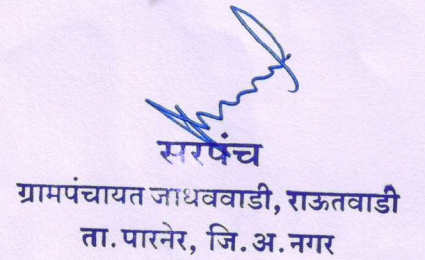 सरपंच
ग्रामपंचायत जाधववाडी, राऊतवाडी
ता. पारनेर, जि. अ. नगर